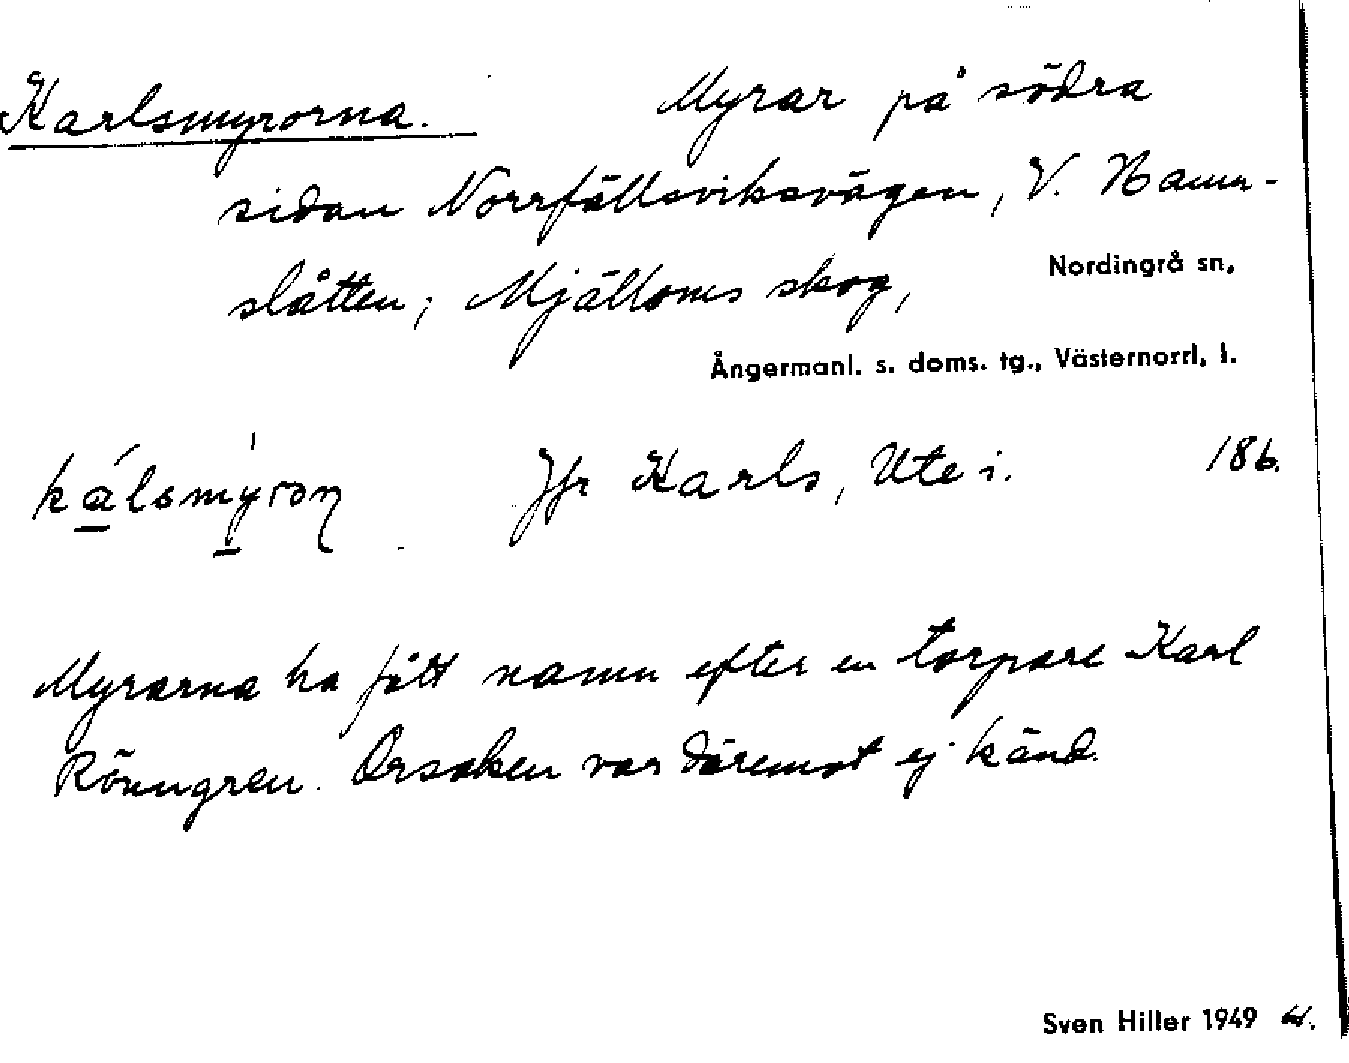 Karlsmyrorna. Myrar på södra
sidan Norrfällsviksvägen, V. Hamn-
slåtten; Mjälloms skog, Nordingrå sn,
Ångermanl. s. doms. tg., Västernorrl. l.
kálsmýron Jfr Karls, Ute i. 186.
Myrarna ha fått namn efter en torpare Karl
Rönngren. Orsaken var däremot ej känd.
Sven Hiller 1949